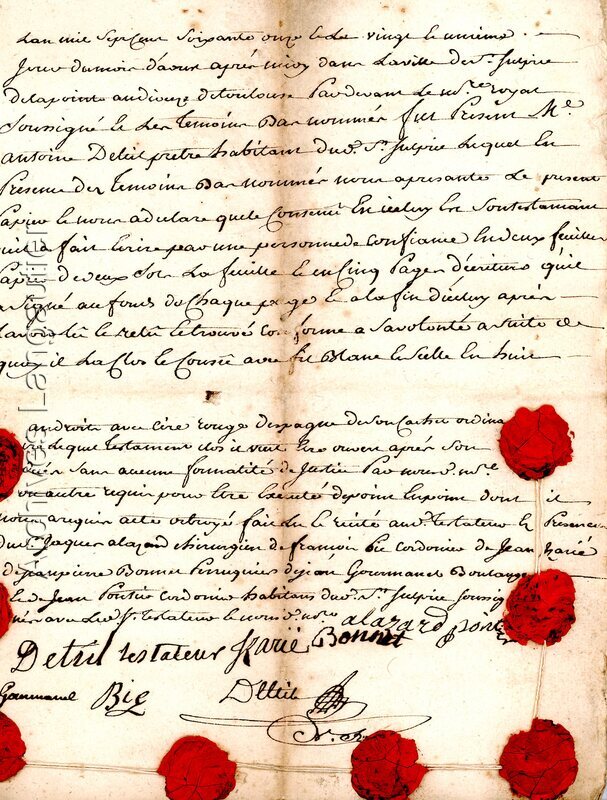 Lan mil Sept cens Soixante onze et le vingt et unieme
Jour du mois daout après midy dans la ville de St. Sulpice
de la pointe au dioceze de toulouse Par devant le nre. royal
Soussigné et les temoins Bas nommés fut Present Me.
antoine Deltil pretre habitant dud. St. Sulpice Lequel En
Presence des temoins Bas nommés nous a presanté le present
Papier et nous a declaré que le Contenu En icelluy Est Son testamant
quil a fait Ecrire par une personne de confiance En deux feuilles
Papier de deux Sols La feuille et en Cinq Pages d'ecriture quil
a Signé au fonds de Chaque page Et a la fin d'icelluy après
Lavoir lu et relu et trouvé conforme a Sa volonté a Suite de
quoy il La Clos et Cousu avec fil Blanc et Sellé En huit
endroits avec Cire rouge despagne de Son Cachet ordinai
re Lequel testament clos il veut Etre ouvert après Son
décés Sans aucune formalité de Justice Par nous d. nre.
ou autre requis pour Etre Executé de point En point dont il
nous a requis acte octroyé fait lu et recité aud. testateur En Presence
du Sr. Jaques alazard chirurgien de françois Bie cordonier de Jean Marié
de Jean pierre Bonnet Perruquier de jean Gourmanel Boulanger
et de Jean Pontié Cordonier habitans dud. St. Sulpice Soussig
nés avec led. Sr. testateur et nous d. nre. alazard pontié
Deltil testateur Marié Bonnet
Gourmanel Bie Deltil
Archives Lanastulier